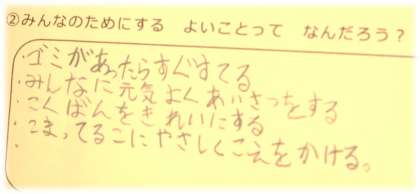 ②みんなのためにする よいことって なんだろう？
・ゴミがあったらすぐすてる
・みんなに元気よくあいさつをする
・こくばんをきれいにする
・こまってるこにやさしくこえをかける。